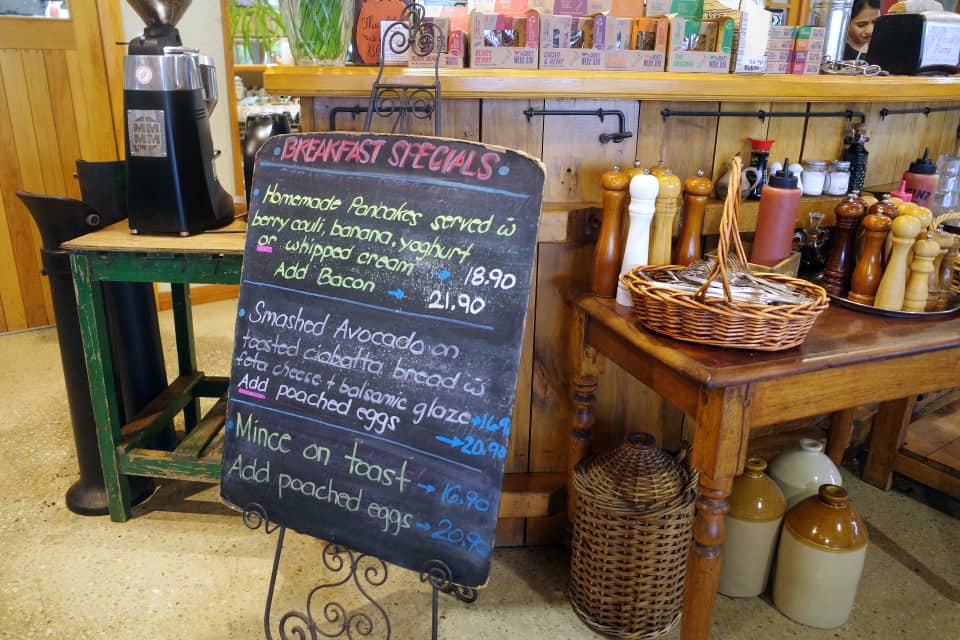 BREAKFAST SPECIALS
Homemade Pancakes served w
berry couli, banana, yoghurt
or whipped cream → 18.90
Add Bacon → 21.90
Smashed Avocado on
toasted ciabatta bread w
feta cheese + balsamic glaze → 16.9
Add poached eggs → 20.90
Mince on toast → 16.90
Add poached eggs → 20.90